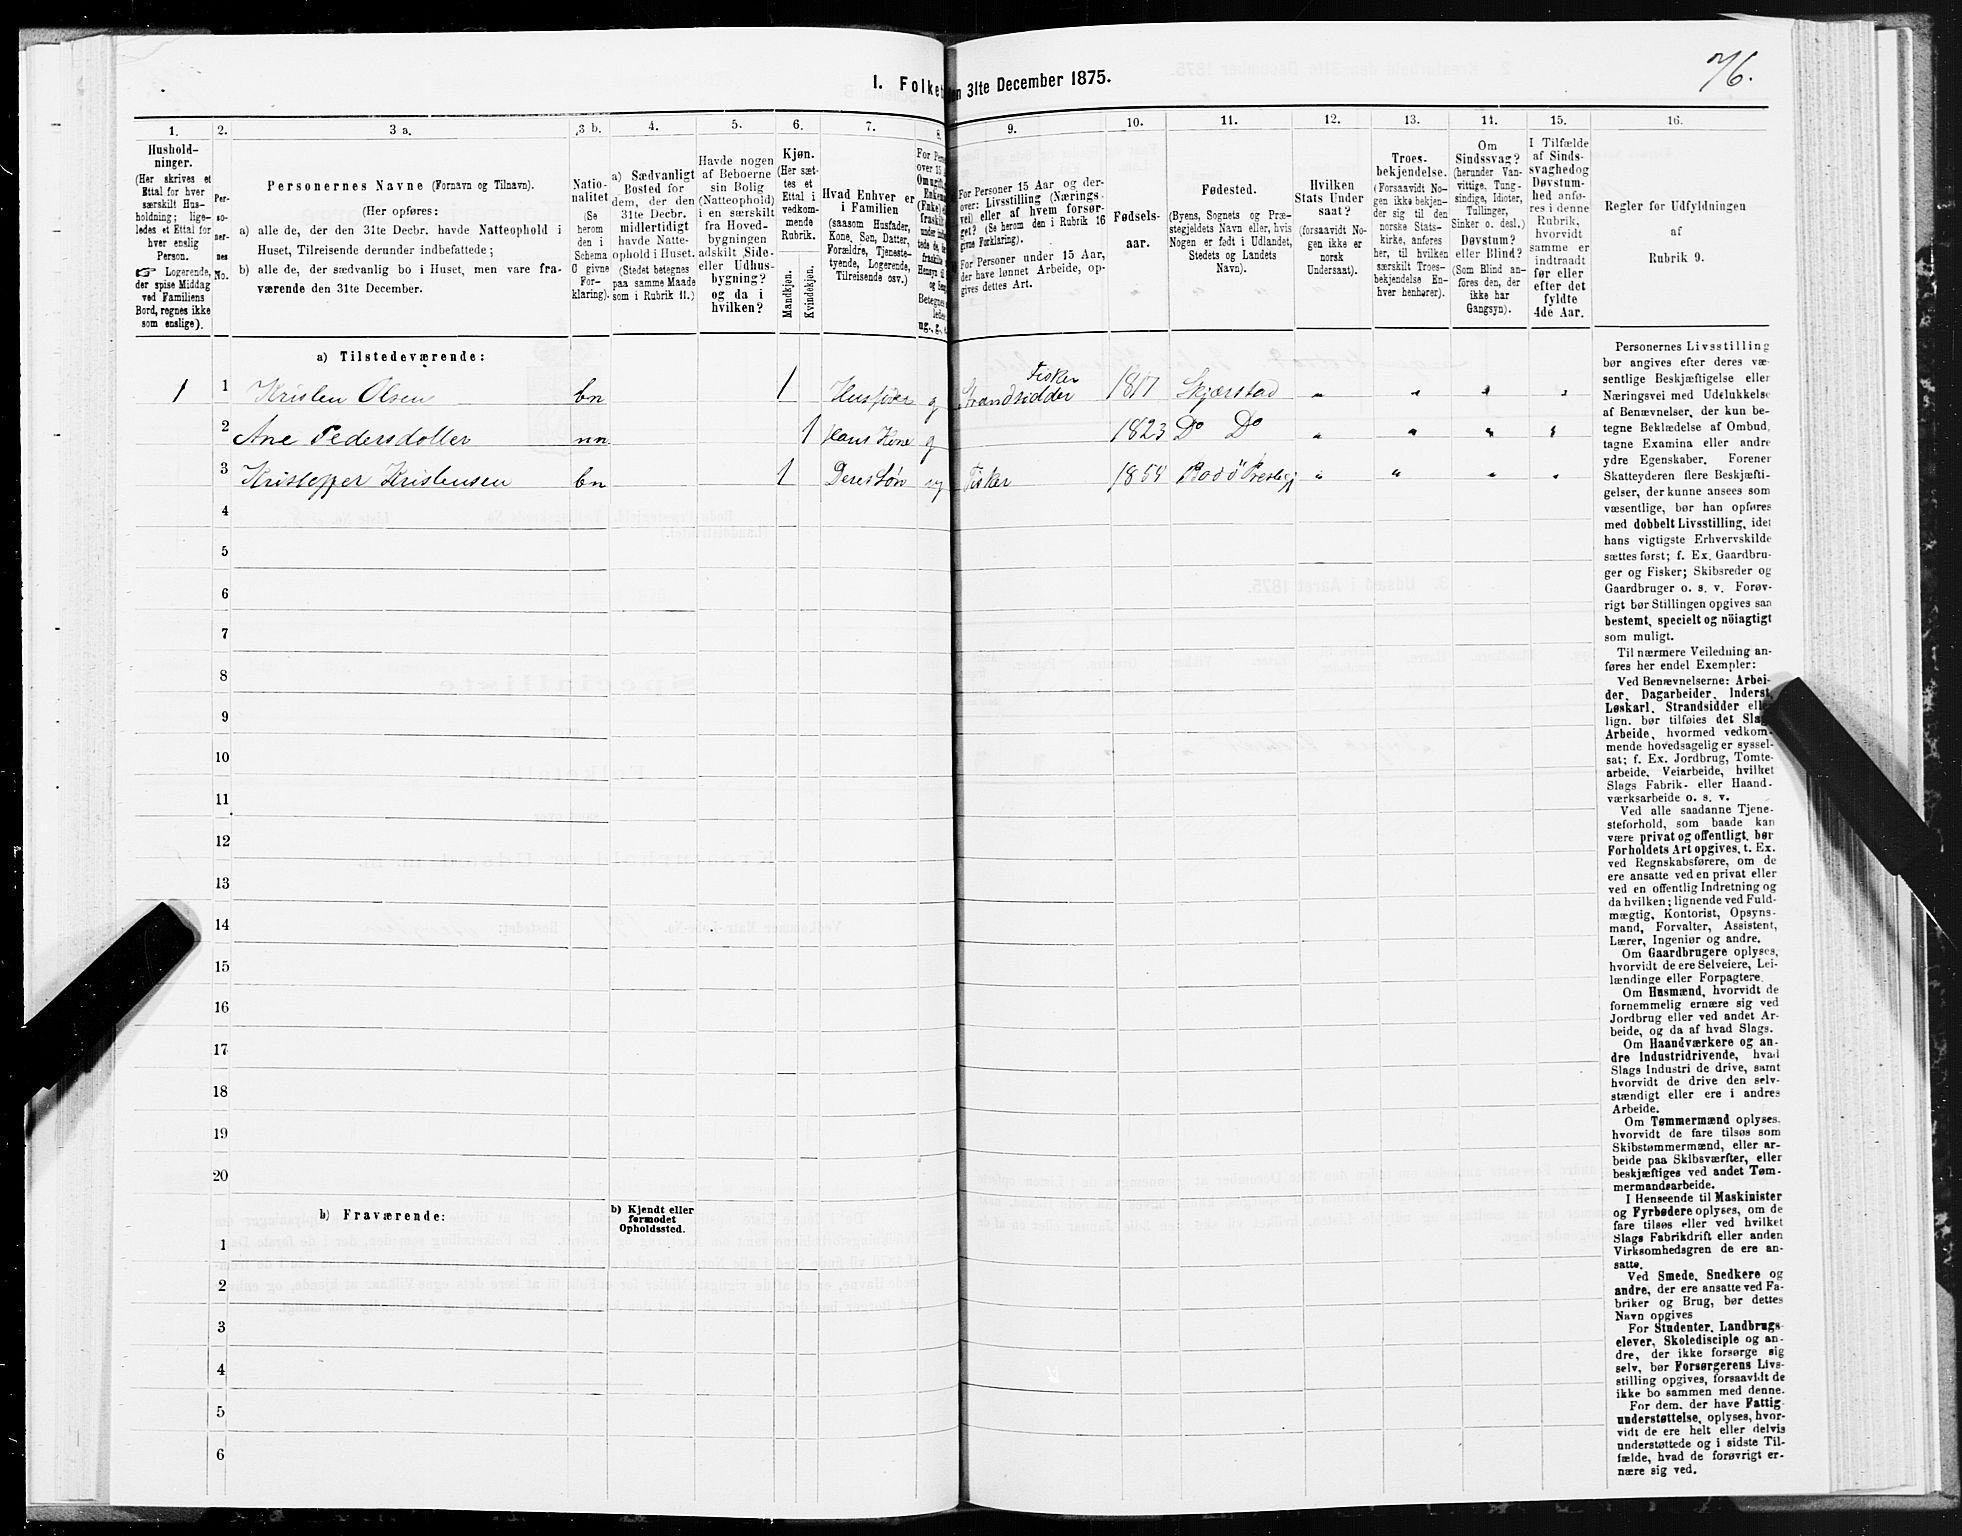 76.
I. Folket
en 31te December 1875.
1.
2.
3 a.
3 b.
4.
5.
6.
7.
8.
9.
10.
11.
12.
13.
14.
15.
16.
Hushold-
ninger.
(Her skrives et
Ettal for hver
særskilt Hus-
holdning; lige-
ledes et Ettal for
hver enslig
Person.
☞ Logerende,
der spise Middag
ved Familiens
Bord, regnes ikke
som enslige).
Per-
so-
ner-
nes
No.
Personernes Navne (Fornavn og Tilnavn).
(Her opføres:
a) alle de, der den 31te Decbr. havde Natteophold i
Huset, Tilreisende derunder indbefattede;
b) alle de, der sædvanlig bo i Huset, men vare fra-
værende den 31te December.
Natio-
nalitet
(Se
herom
den i
Schema
C givne
For-
klaring).
a) Sædvanligt
Bosted for
dem, der den
31te Decbr.
midlertidigt
havde Natte-
ophold i Huset.
(Stedet betegnes
paa samme Maade
som i Rubrik 11.)
Havde nogen
af Beboerne
sin Bolig
(Natteophold)
i en særskilt
fra Hoved-
bygningen
adskilt Side-
eller Udhus-
bygning?
og da i
hvilken?
Kjøn.
(Her sæt-
tes et
Ettal i
vedkom-
mende
Rubrik.
Mandkjøn.
Kvindekjøn.
Hvad Enhver er
i Familien
(saasom Husfader,
Kone, Søn, Datter,
Forældre, Tjeneste-
tyende, Logerende,
Tilreisende osv.)
For Personer 15 Aar og der-
over: Livsstilling (Nærings-
vei) eller af hvem forsør-
get? (Se herom den i Rubrik 16
givne Forklaring).
For Personer under 15 Aar,
der have lønnet Arbeide, op-
gives dettes Art.
Fødsels-
aar.
Fødested.
(Byens, Sognets og Præ-
stegjeldets Navn eller, hvis
Nogen er født i Udlandet,
Stedets og Landets
Navn).
Hvilken
Stats Under
saat?
(forsaavidt No-
gen ikke er
norsk
Undersaat).
Troes-
bekjendelse.
(Forsaavidt No-
gen ikke bekjen-
der sig til den
norske Stats-
kirke, anføres
her, til hvilken
særskilt Troes-
bekjendelse En-
hver henhører).
Om
Sindssvag?
(herunder Van-
vittige, Tung-
sindige, Idioter,
Tullinger,
Sinker o. desl.)
Døvstum?
eller Blind?
(Som Blind an-
føres den, der
ikke har
Gangsyn).
I Tilfælde
af Sinds-
svaghedog
Døvstum-
hed anfø-
res i denne
Rubrik,
hvorvidt
samme er
indtraadt
før eller
efter det
fyldte
4de Aar.
Regler for Udfyldningen
af
Rubrik 9.
a) Tilstedeværende:
1 1 Kristen Olsen bn 1 Husfader g Strandsidder Fisker 1817 Skjærstad " " " "
2 Ane Pedersdotter nn 1 Hans Kone g 1823 Do Do " " " "
3 Kristoffer Kristensen bn 1 Deres Søn ug Fisker 1854 Bodø Prestegj " " " "
4
5
6
7
8
9
10
11
12
13
14
15
16
17
18
19
20
b) Fraværende:
b) Kjendt eller
formodet
Opholdssted.
1
2
3
4
5
6
Personernes Livsstilling
bør angives efter deres væ-
sentlige Beskjæftigelse eller
Næringsvei med Udelukkelse
af Benævnelser, der kun be-
tegne Beklædelse af Ombud,
tagne Examina eller andre
ydre Egenskaber. Forener
Skatteyderen flere Beskjæfti-
gelser, der kunne ansees som
væsentlige, bør han opføres
med dobbelt Livsstilling, idet
hans vigtigste Erhvervskilde
sættes først; f. Ex. Gaardbru-
ger og Fisker; Skibsreder og
Gaardbruger o. s. v. Forøv-
rigt bør Stillingen opgives saa
bestemt, specielt og nöiagtigt
som muligt.
Til nærmere Veiledning an-
føres her endel Exempler:
Ved Benævnelserne: Arbei-
der, Dagarbeider, Inderst,
Løskarl, Strandsidder elle
lign. bør tilføies det Slag
Arbeide, hvormed vedkom-
mende hovedsagelig er syssel-
sat; f. Ex. Jordbrug, Tomte-
arbeide, Veiarbeide, hvilket
Slags Fabrik- eller Haand-
værksarbeide o. s. v.
Ved alle saadanne Tjene-
steforhold, som baade kan
være privat og offentligt, bør
Forholdets Art opgives, t. Ex.
ved Regnskabsførere, om de
ere ansatte ved en privat eller
ved en offentlig Indretning og
da hvilken; lignende ved Fuld-
mægtig, Kontorist, Opsyns-
mand, Forvalter, Assistent,
Lærer, Ingeniør og andre.
Om Gaardbrugere oplyses,
hvorvidt de ere Selveiere, Lei-
lændinge eller Forpagtere.
Om Husmænd, hvorvidt de
fornemmelig ernære sig ved
Jordbrug eller ved andet Ar-
beide, og da af hvad Slags.
Om Haandværkere og an-
dre Industridrivende, hvad
Slags Industri de drive, samt
hvorvidt de drive den selv-
stændigt eller ere i andres
Arbeide.
Om Tømmermænd oplyses,
hvorvidt de fare tilsøs som
Skibstømmermænd, eller ar-
beide paa Skibsværfter, eller
beskjæftiges ved andet Tøm-
mermandsarbeide.
I Henseende til Maskinister
og Fyrbødere oplyses, om de
fare tilsøs eller ved hvilket
Slags Fabrikdrift eller anden
Virksomhedsgren de ere an-
satte.
Ved Smede, Snedkere og
andre, der ere ansatte ved Fa-
briker og Brug, bør dettes
Navn opgives
For Studenter, Landbrugs-
elever, Skoledisciple og an-
dre, der ikke forsørge sig
selv, bør Forsørgerens Livs-
stilling opgives, forsaavidt de
ikke bo sammen med denne.
For dem, der have Fattig-
understøttelse, oplyses, hvor-
vidt de ere helt eller delvis
understøttede og i sidste Til-
fælde, hvad de forøvrigt er-
nære sig ved.